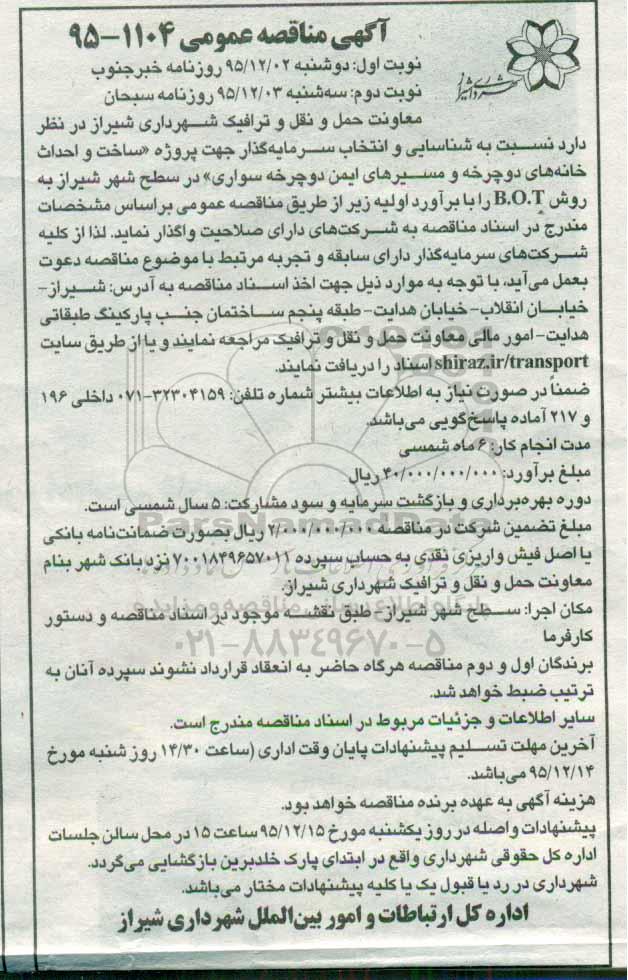 آگهی مناقصه عمومی ۱۱۰۴-۹۵
نوبت اول: دوشنبه ۹۵/۱۲/۰۲ روزنامه خبرجنوب
نوبت دوم: سه‌شنبه ۹۵/۱۲/۰۳ روزنامه سبحان
شهرداری شیراز
معاونت حمل و نقل و ترافیک شهرداری شیراز در نظر
دارد نسبت به شناسایی و انتخاب سرمایه‌گذار جهت پروژه «ساخت و احداث
خانه‌های دوچرخه و مسیرهای ایمن دوچرخه سواری» در سطح شهر شیراز به
روش B.O.T را با برآورد اولیه زیر از طریق مناقصه عمومی براساس مشخصات
مندرج در اسناد مناقصه به شرکت‌های دارای صلاحیت واگذار نماید. لذا از کلیه
شرکت‌های سرمایه‌گذار دارای سابقه و تجربه مرتبط با موضوع مناقصه دعوت
بعمل می‌آید، با توجه به موارد ذیل جهت اخذ اسناد مناقصه به آدرس: شیراز-
خیابان انقلاب- خیابان هدایت- طبقه پنجم ساختمان جنب پارکینگ طبقاتی
هدایت- امور مالی معاونت حمل و نقل و ترافیک مراجعه نمایند و یا از طریق سایت
shiraz.ir/transport اسناد را دریافت نمایند.
ضمناً در صورت نیاز به اطلاعات بیشتر شماره تلفن: ۳۲۳۰۴۱۵۹-۰۷۱ داخلی ۱۹۶
و ۲۱۷ آماده پاسخ‌گویی می‌باشد.
مدت انجام کار: ۶ ماه شمسی
مبلغ برآورد: ۴۰/۰۰۰/۰۰۰/۰۰۰ ریال
دوره بهره‌برداری و بازگشت سرمایه و سود مشارکت: ۵ سال شمسی است.
ParsNamadData
مبلغ تضمین شرکت در مناقصه ۲/۰۰۰/۰۰۰/۰۰۰ ریال بصورت ضمانت‌نامه بانکی
یا اصل فیش واریزی نقدی به حساب سپرده ۷۰۰۱۸۴۹۶۵۷۰۱۱ نزد بانک شهر بنام
معاونت حمل و نقل و ترافیک شهرداری شیراز.
پایگاه اطلاع رسانی مناقصه و مزایده
مکان اجرا: سطح شهر شیراز- طبق نقشه موجود در اسناد مناقصه و دستور
کارفرما
۰۲۱-۸۸۳۴۹۶۷۰-۵
برندگان اول و دوم مناقصه هرگاه حاضر به انعقاد قرارداد نشوند سپرده آنان به
ترتیب ضبط خواهد شد.
سایر اطلاعات و جزئیات مربوط در اسناد مناقصه مندرج است.
آخرین مهلت تسلیم پیشنهادات پایان وقت اداری (ساعت ۱۴/۳۰ روز شنبه مورخ
۹۵/۱۲/۱۴ می‌باشد.
هزینه آگهی به عهده برنده مناقصه خواهد بود.
پیشنهادات واصله در روز یکشنبه مورخ ۹۵/۱۲/۱۵ ساعت ۱۵ در محل سالن جلسات
اداره کل حقوقی شهرداری واقع در ابتدای پارک خلدبرین بازگشایی می‌گردد.
شهرداری در رد یا قبول یک یا کلیه پیشنهادات مختار می‌باشد.
اداره کل ارتباطات و امور بین‌الملل شهرداری شیراز